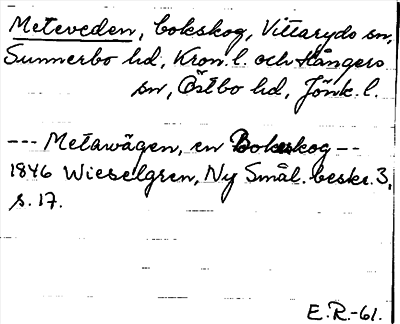 Meteveden, bokskog, Vittaryds sn,
Sunnerbo hd, Kron. l. och Hångers
sn, Östbo hd, Jönk. l.
--- Metawägen, en Bokskog --
1846 Wieselgren, Ny Smål. beskr. 3,
s. 17.
E.R.-61.